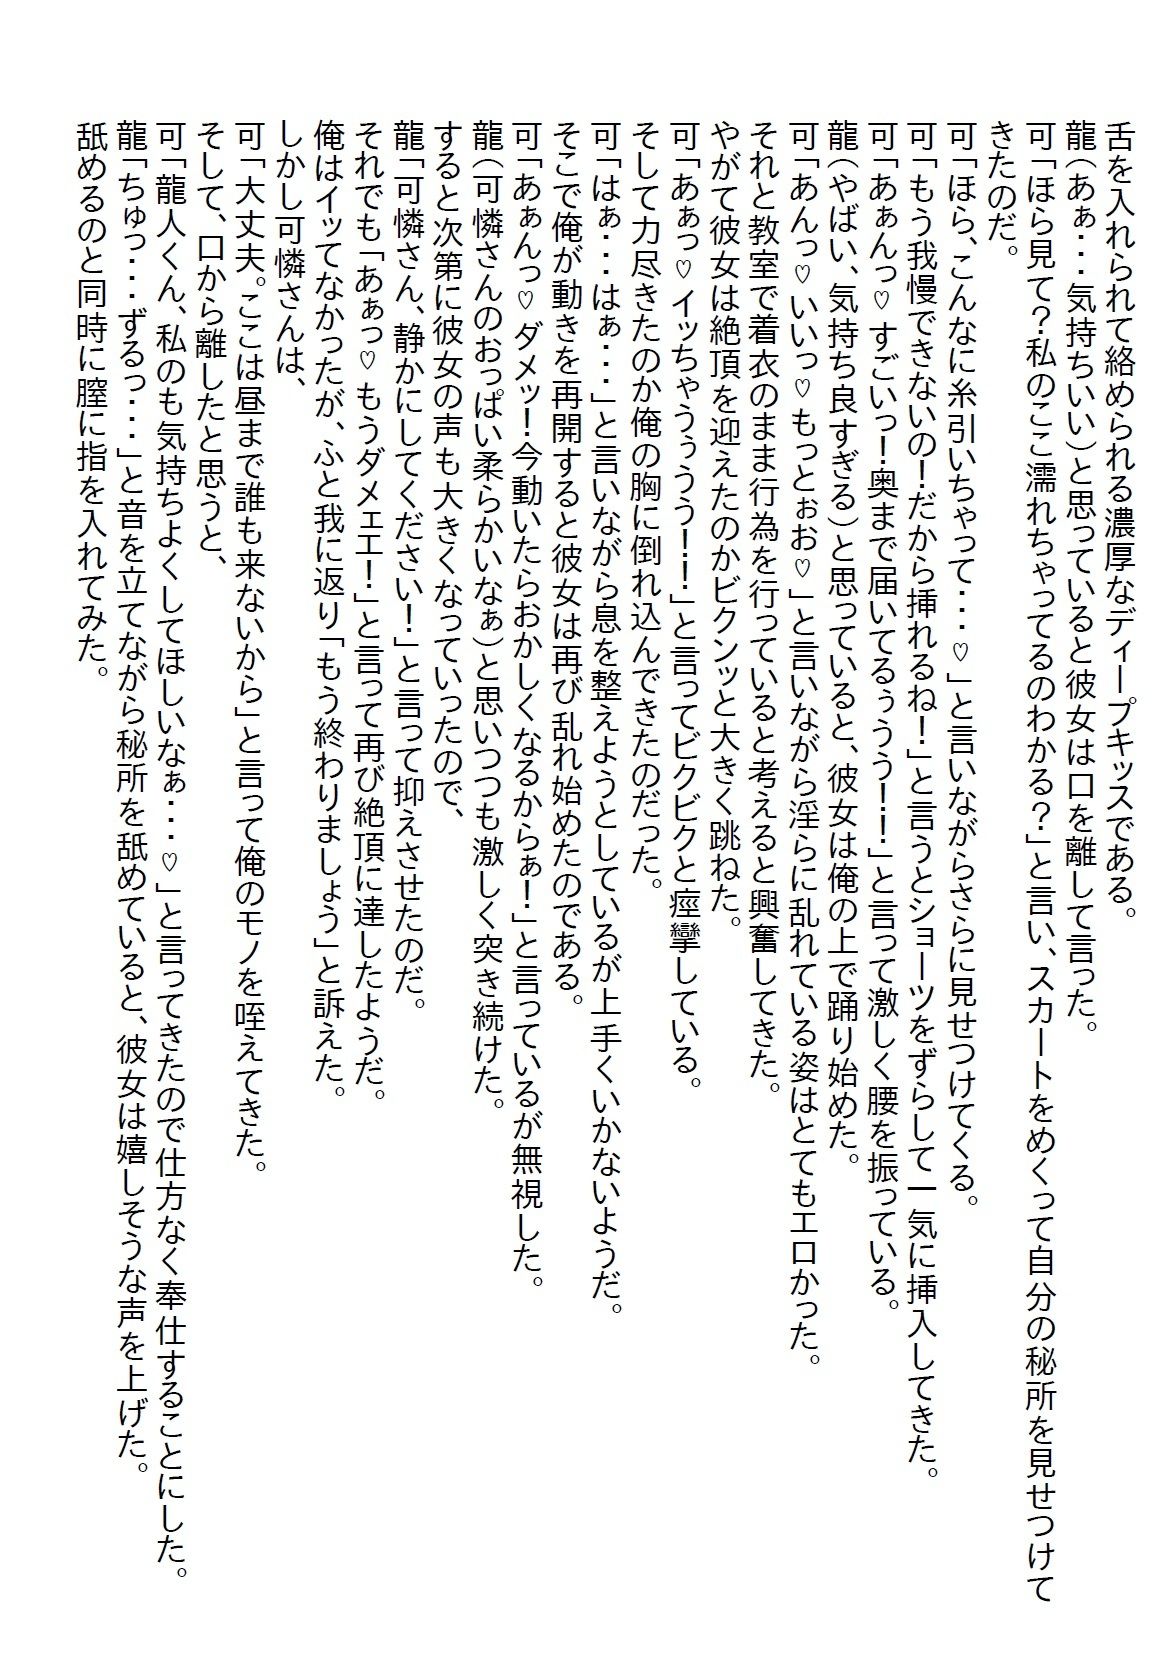 舌を入れられて絡められる濃厚なディープキッスである。
龍（あぁ・・・気持ちいい）と思っていると彼女は口を離して言った。
可「ほら見て？私のここ濡れちゃってるのわかる？」と言い、スカートをめくって自分の秘所を見せつけて
きたのだ。
可「ほら、こんなに糸引いちゃって・・・♡」と言いながらさらに見せつけてくる。
可「もう我慢できないの！だから挿れるね！」と言うとショーツをずらして一気に挿入してきた。
可「あぁんっ♡すごいっ！奥まで届いてるぅうう！！」と言って激しく腰を振っている。
龍（やばい、気持ち良すぎる）と思っていると、彼女は俺の上で踊り始めた。
可「あんっ♡いいっ♡もっとぉお♡」と言いながら淫らに乱れている姿はとてもエロかった。
それと教室で着衣のまま行為を行っていると考えると興奮してきた。
やがて彼女は絶頂を迎えたのかビクンッと大きく跳ねた。
可「あぁっ♡イッちゃうぅうう！！」と言ってビクビクと痙攣している。
そして力尽きたのか俺の胸に倒れ込んできたのだった。
可「はぁ・・・はぁ・・・」と言いながら息を整えようとしているが上手くいかないようだ。
そこで俺が動きを再開すると彼女は再び乱れ始めたのである。
可「あぁんっ♡ダメッ！今動いたらおかしくなるからぁ！」と言っているが無視した。
龍（可憐さんのおっぱい柔らかいなぁ）と思いつつも激しく突き続けた。
すると次第に彼女の声も大きくなっていったので、
龍「可憐さん、静かにしてください！」と言って抑えさせたのだ。
それでも「あぁっ♡もうダメェエ！」と言って再び絶頂に達したようだ。
俺はイッてなかったが、ふと我に返り「もう終わりましょう」と訴えた。
しかし可憐さんは、
可「大丈夫。ここは昼まで誰も来ないから」と言って俺のモノを咥えてきた。
そして、口から離したと思うと、
可「龍人くん、私のも気持ちよくしてほしいなぁ・・・♡」と言ってきたので仕方なく奉仕することにした。
龍「ちゅっ・・・ずるっ・・・」と音を立てながら秘所を舐めていると、彼女は嬉しそうな声を上げた。
舐めるのと同時に膣に指を入れてみた。